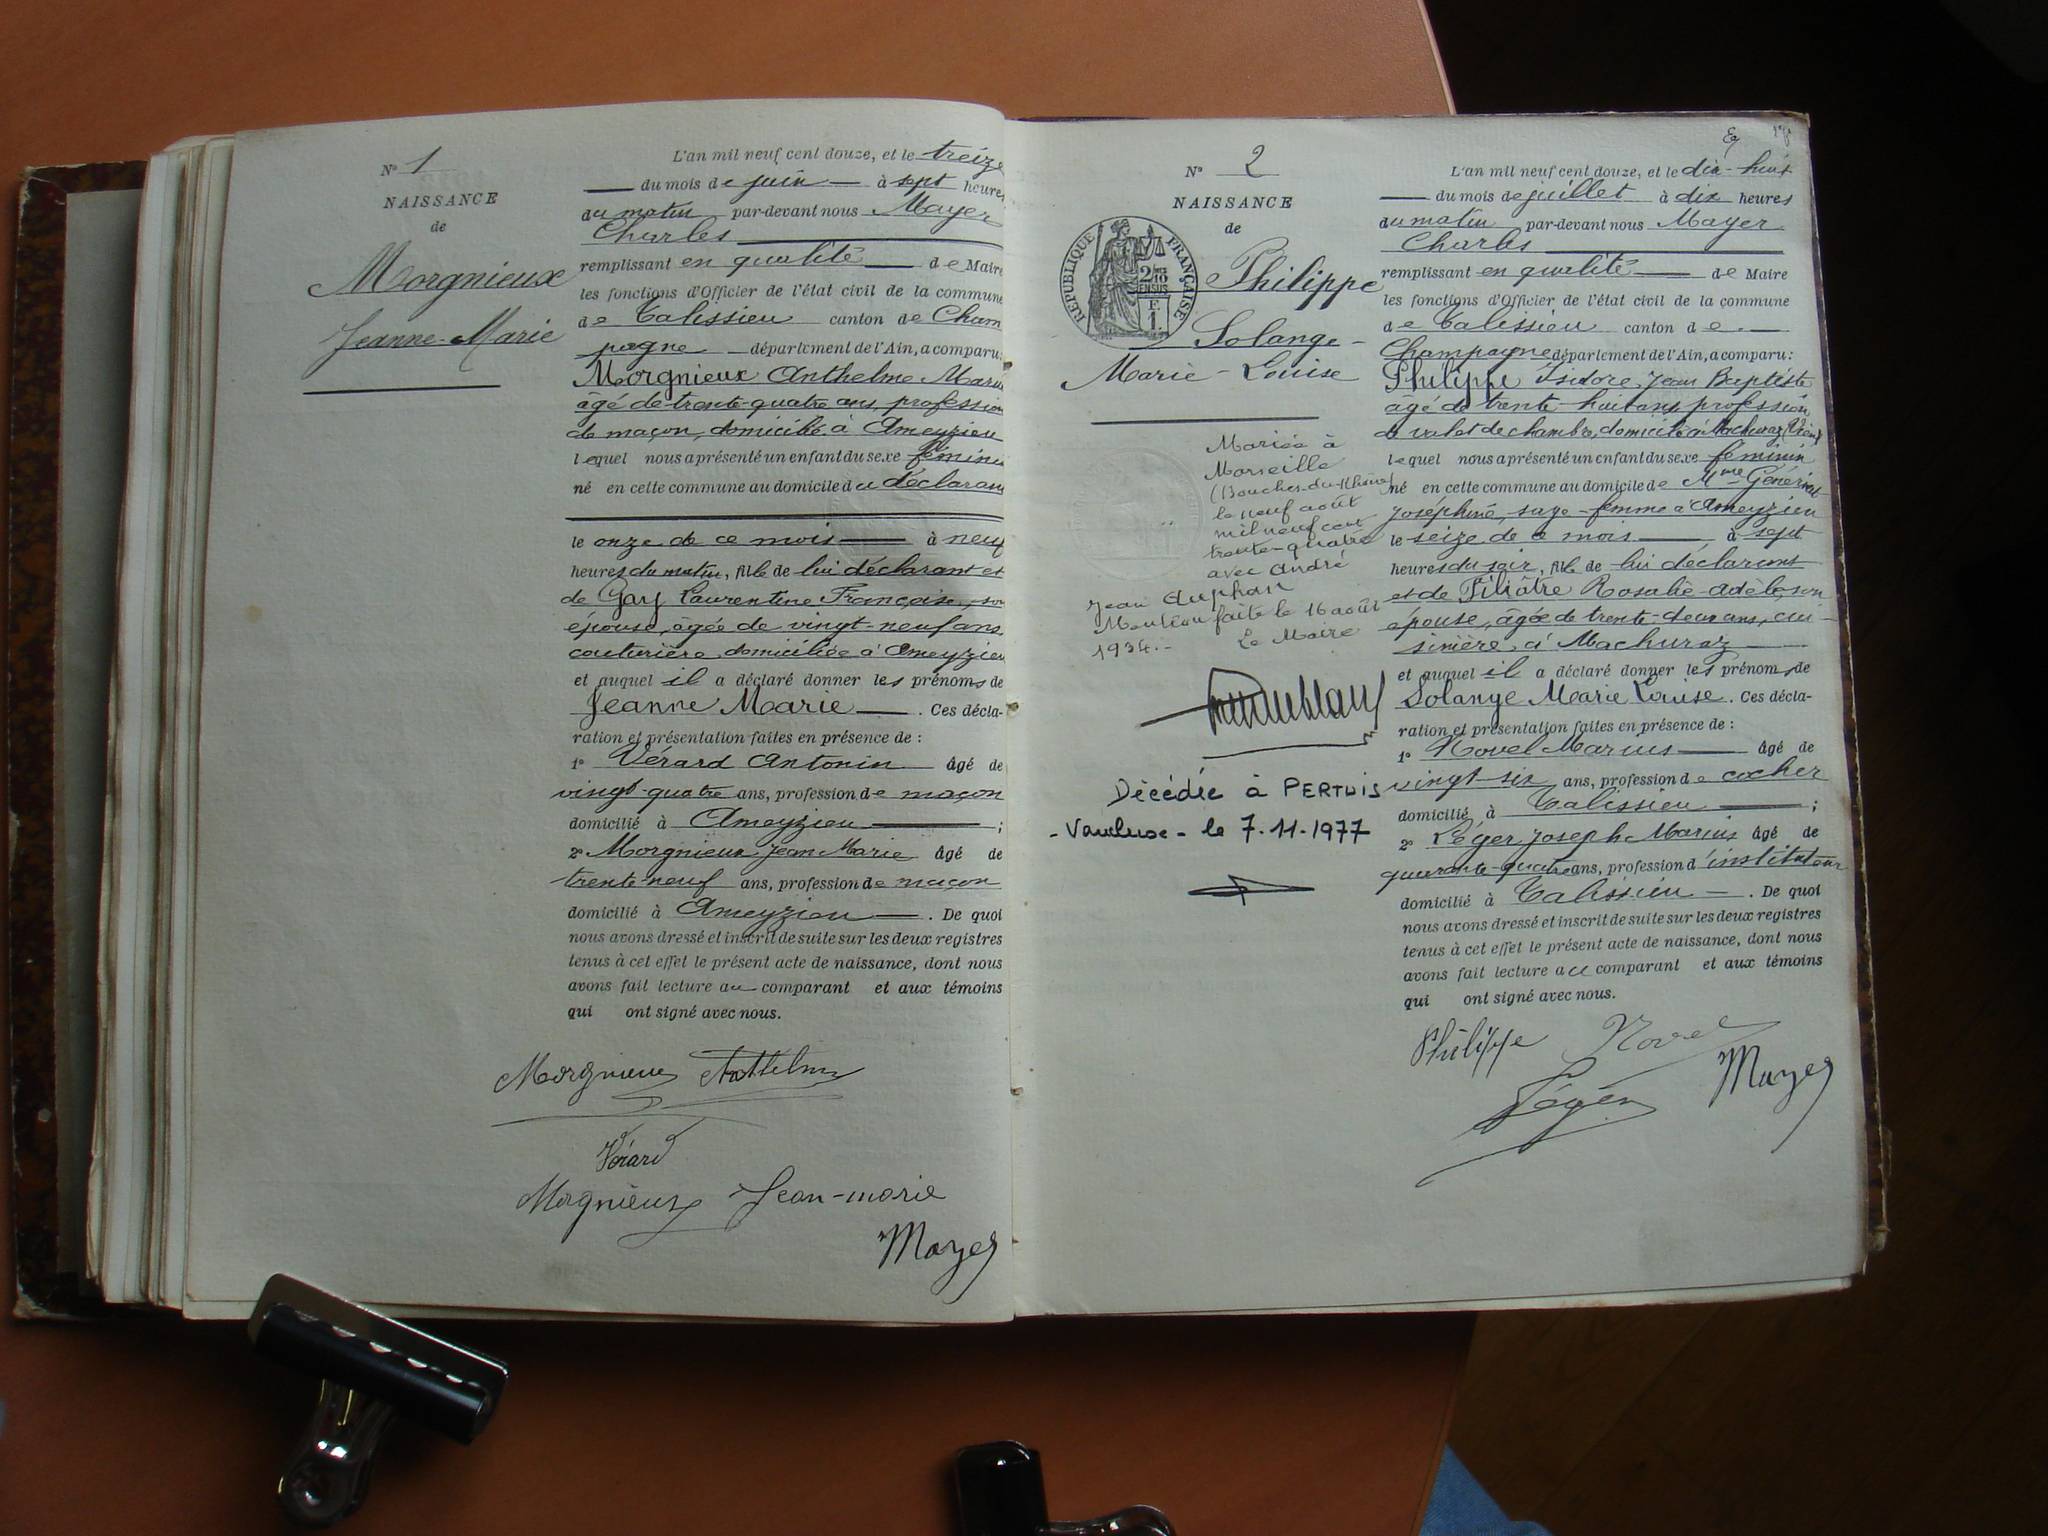 N° 1
NAISSANCE
de
Morgnieux
Jeanne-Marie
L'an mil neuf cent douze, et le treize
du mois de juin à sept heures
du matin par-devant nous Mayer
Charles
remplissant en qualité de Maire
les fonctions d'Officier de l'état civil de la commune
de Talissieu canton de Cham
pagne département de l'Ain, a comparu:
Morgnieux Anthelme Marius
âgé de trente-quatre ans, profession
de maçon, domicilié à Ameyzieu
lequel nous a présenté un enfant du sexe féminin
né en cette commune au domicile du déclarant
le onze de ce mois à neuf
heures du matin, fille de lui déclarant et
de Gay Laurentine Françoise, son
épouse, âgée de vingt-neuf ans
couturière domiciliée à Ameyzieu
et auquel il a déclaré donner les prénoms de
Jeanne Marie. Ces décla-
ration et présentation faites en présence de :
1° Vérard Antonin âgé de
vingt-quatre ans, profession de maçon
domicilié à Ameyzieu ;
2° Morgnieux Jean Marie âgé de
trente-neuf ans, profession de maçon
domicilié à Ameyzieu. De quoi
nous avons dressé et inscrit de suite sur les deux registres
tenus à cet effet le présent acte de naissance, dont nous
avons fait lecture au comparant et aux témoins
qui ont signé avec nous.
Morgnieux Anthelme
Vérard
Morgnieux Jean-marie
Mayer
N° 2
NAISSANCE
de
RÉPUBLIQUE FRANÇAISE
2/10 EN SUS
F
1
Philippe
Solange-
Marie-Louise
Mariée à
Marseille
(Bouches-du-Rhône)
le neuf août
mil neuf cent
trente-quatre
avec André
Jean Auphan
Mention faite le 16 août
1934.- Le Maire
Décédée à PERTUIS
-Vaucluse- le 7-11-1977
L'an mil neuf cent douze, et le dix-huit
du mois de juillet à dix heures
du matin par-devant nous Mayer
Charles
remplissant en qualité de Maire
les fonctions d'Officier de l'état civil de la commune
de Talissieu canton de
Champagne département de l'Ain, a comparu:
Philippe Isidore Jean Baptiste
âgé de trente-huit ans profession
de valet de chambre, domicilié à Machuraz
lequel nous a présenté un enfant du sexe féminin
né en cette commune au domicile de Mme
Joséphine, sage-femme à Ameyzieu
le seize de ce mois à sept
heures du soir, fille de lui déclarant
et de Filiâtre Rosalie-Adèle son
épouse, âgée de trente-deux ans, cui-
sinière à Machuraz
et auquel il a déclaré donner les prénoms de
Solange Marie Louise. Ces décla-
ration et présentation faites en présence de :
1° Novel Marius âgé de
vingt-six ans, profession de cocher
domicilié à Talissieu ;
2° Léger Joseph Marius âgé de
quarante-quatre ans, profession d'instituteur
domicilié à Talissieu. De quoi
nous avons dressé et inscrit de suite sur les deux registres
tenus à cet effet le présent acte de naissance, dont nous
avons fait lecture au comparant et aux témoins
qui ont signé avec nous.
Philippe Novel
Léger Mayer